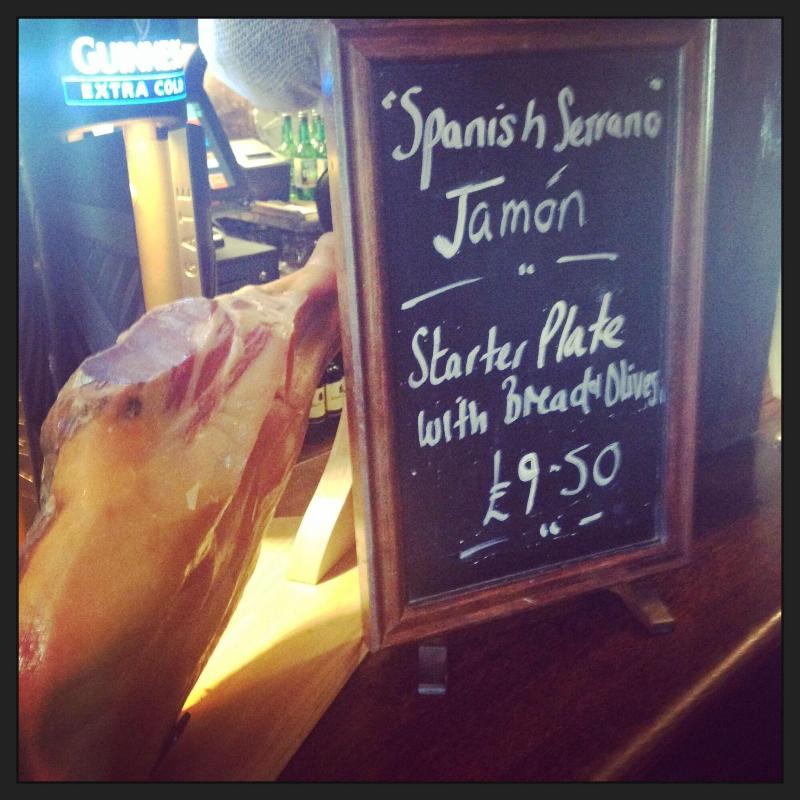 GUINNESS
EXTRA COLD
"Spanish Serrano"
Jamón
— " —
Starter Plate
with Bread & Olives
£9-50
— " —